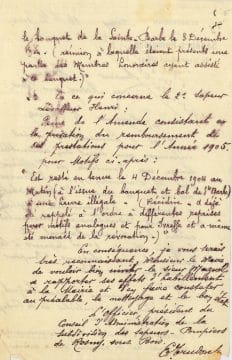 le banquet de la Sainte-Barbe le 3 Décembre
(réunion à laquelle étaient présents une
partie des Membres honoraires ayant assisté
banquet.)"
En ce qui concerne le 2e sapeur
Henri:
Peine de l'Amende consistant en
la privation du remboursement de
ses prestations pour l'Année 1905.
pour Motifs ci-après:
"Est resté en tenue le 4 Décembre 1904 au
Matin, à l'issue du banquet et bal de Ste Barbe
à une heure illégale" (Récidive - a déjà
rappelé à l'ordre à différentes reprises
pour motifs analogues et pour et a même
été menacé de la révocation).
En conséquence, je vous serais
très reconnaissant, Monsieur le Maire
de vouloir bien inviter le sieur
rapporter ses effets d'habillement
à la Mairie et d'en faire constater
au préalable, le nettoyage et le bon état
L'Officier, président du
Conseil d'Administration de la
Subdivision des Sapeurs-Pompiers
de Rosny-sous-Bois.